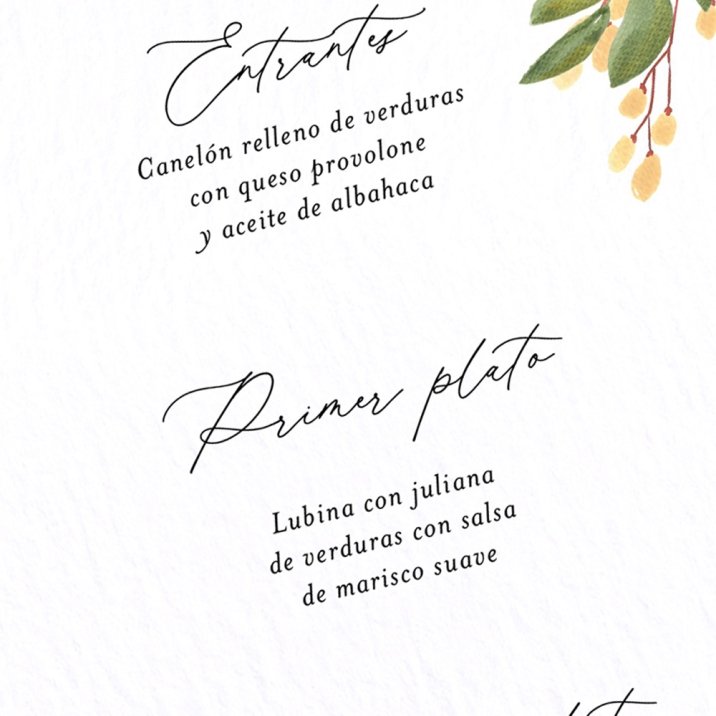 Entrantes
Canelón relleno de verduras
con queso provolone
y aceite de albahaca
Primer plato
Lubina con juliana
de verduras con salsa
de marisco suave